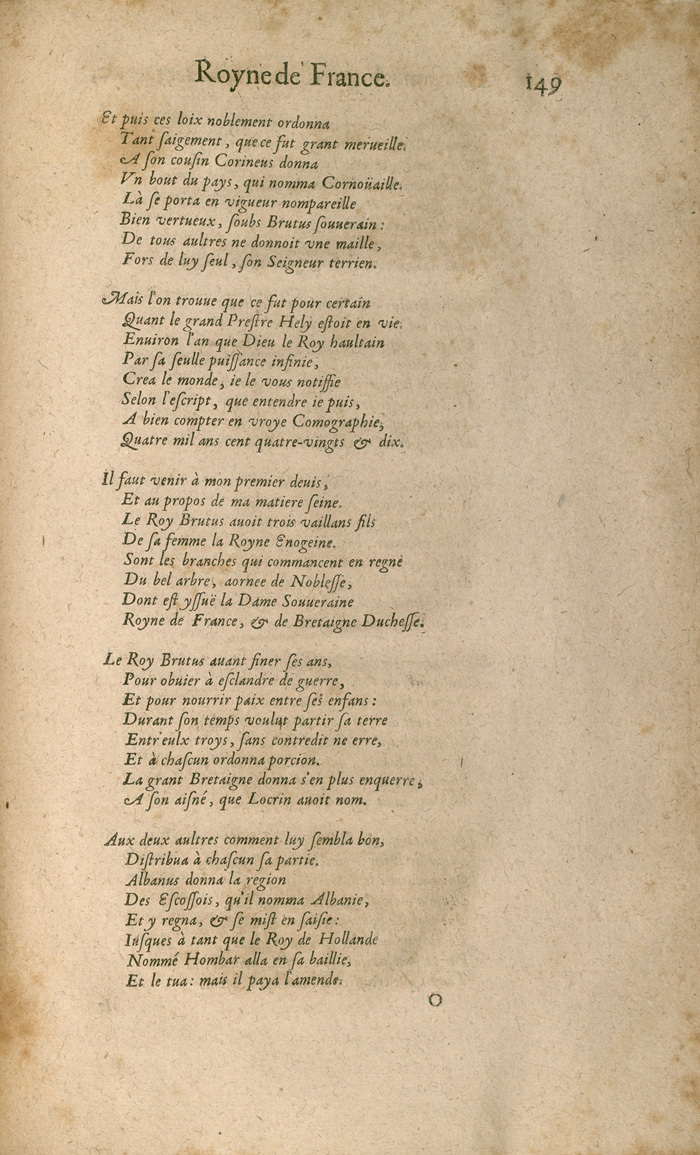 Royne de France. 149
Et puis ces loix noblement ordonna
Tant ſaigement, que ce fut grant merueille.
A ſon couſin Corineus donna
Vn bout du pays, qui nomma Cornoüaille.
Là ſe porta en vigueur nompareille
Bien vertueux, ſoubs Brutus ſouuerain:
De tous aultres ne donnoit vne maille,
Fors de luy ſeul, ſon Seigneur terrien.
Mais l'on trouue que ce fut pour certain
Quant le grand Preſtre Hely eſtoit en vie.
Enuiron l'an que Dieu le Roy haultain
Par ſa ſeulle puiſſance infinie,
Crea le monde, ie le vous notiffie
Selon l'eſcript, que entendre ie puis,
A bien compter en vroye Comographie,
Quatre mil ans cent quatre-vingts & dix.
Il faut venir à mon premier deuis,
Et au propos de ma matiere ſeine.
Le Roy Brutus auoit trois vaillans fils
De ſa femme la Royne Enogeine.
Sont les branches qui commancent en regne
Du bel arbre, aornee de Nobleſſe,
Dont eſt yſſuë la Dame Souueraine
Royne de France, & de Bretaigne Ducheſſe.
Le Roy Brutus auant finer ſes ans,
Pour obuier à eſclandre de guerre,
Et pour nourrir paix entre ſes enfans:
Durant ſon temps voulut partir ſa terre
Entr'eulx troys, ſans contredit ne erre,
Et à chaſcun ordonna porcion.
La grant Bretaigne donna s'en plus enquerre,
A ſon aiſné, que Locrin auoit nom.
Aux deux aultres comment luy ſembla bon,
Diſtribua à chaſcun ſa partie.
Albanus donna la region
Des Eſcoſſois, qu'il nomma Albanie,
Et y regna, & ſe miſt en ſaiſie:
Iuſques à tant que le Roy de Hollande
Nommé Hombar alla en ſa baillie,
Et le tua: mais il paya l'amende.
O